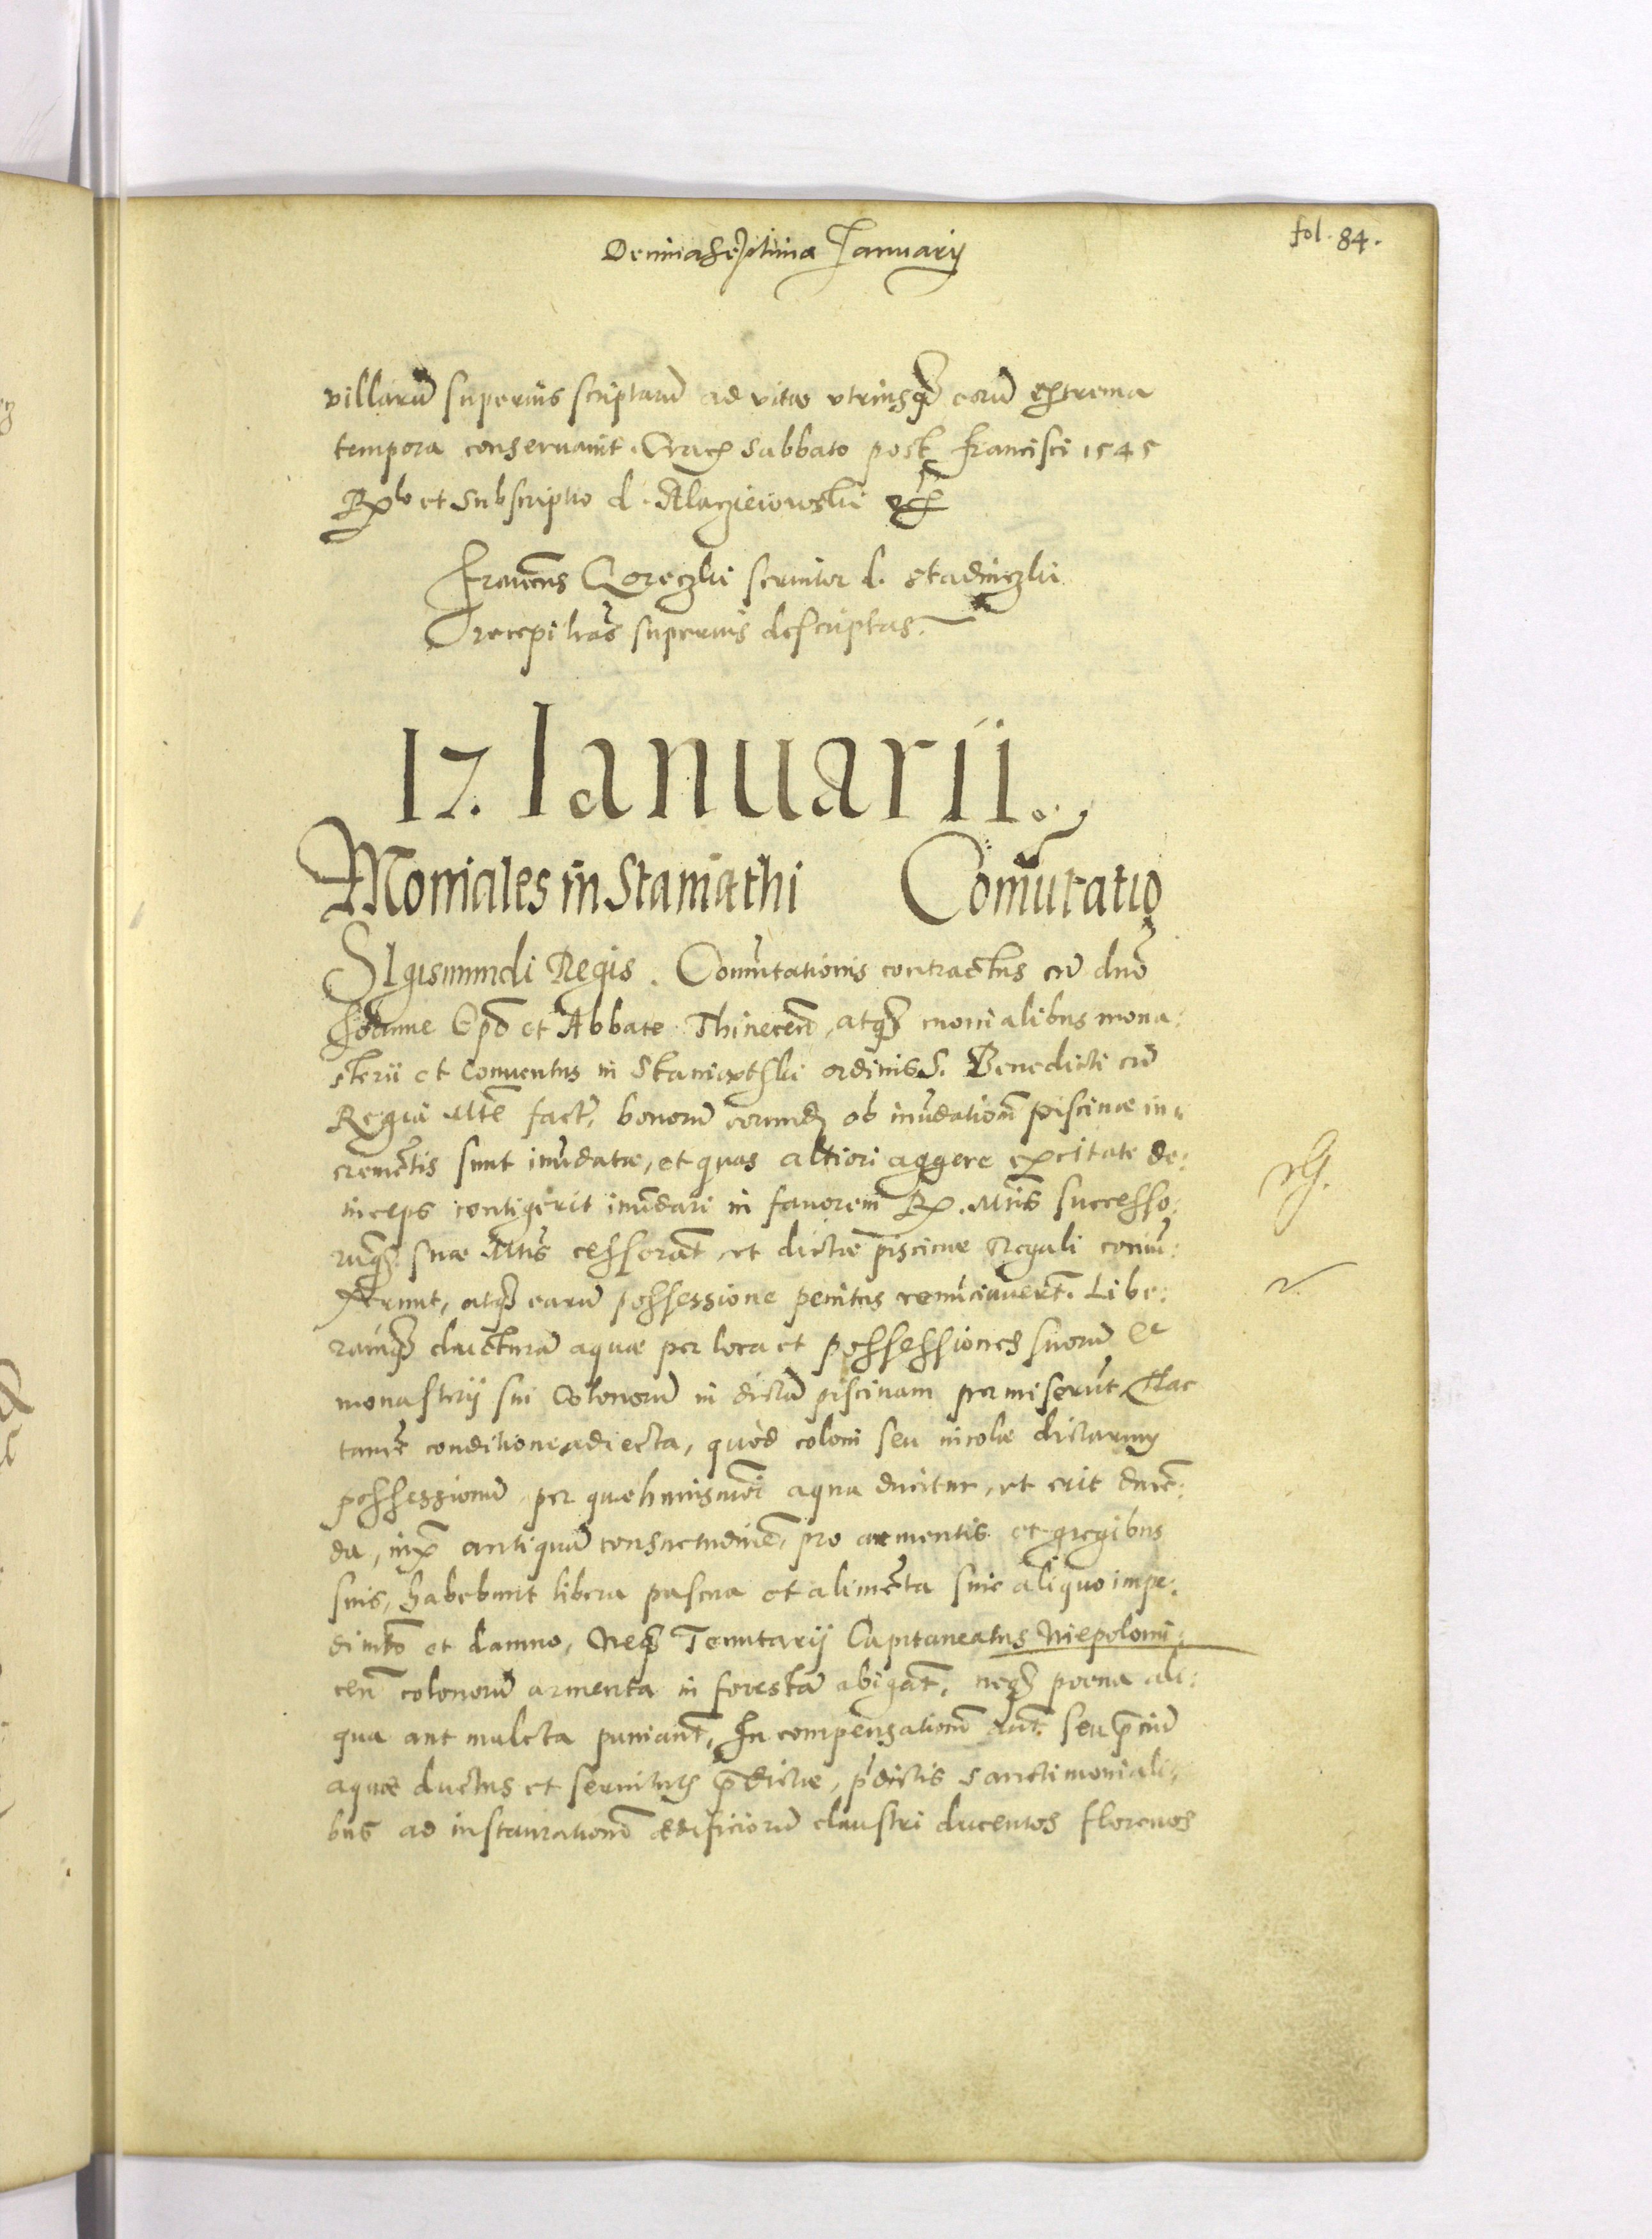 Decimaseptima Januarij
fol. 84.
villarũ superius scriptarũ ad vitae vtriusq́ eorũ extrema
tempora conservavit. Crac. Sabbato post Francisci 1545
Rx et subscriptio d. Maczieiowski
Franciscus Goreczki servitor d. Stadniczki
recepi lras superius descriptas.
17. Ianuarii.
Moniales in Staniathi Comũtatio
SIgismundi Regis. Comũtationis contractus cũ dno
Joanne Epo et Abbate Thinecen, atq́ monialibus mona:
sterii et Conventus in Staniathki ordinis S. Benedicti cũ
Regia Mte fact, bonorũ eorund ob inũdationẽ piscinae in
cremẽtis sunt inũdatae, et quas altiori aggere excitate de:
inceps contigerit inũdari in favorem Rx. Mtis successo:
rũq́ suae Mtis cesserãt et dictae piscinae Regali coniũ:
xerunt, atq́ earũ possessione penitus renũciaverũt. Libe:
rãmq́ ducturã aquae per loca et possessiones suorũ et
monasterij sui Colonorũ in dictã piscinam permiserũt. Hac
tamẽ conditione adiecta, quòd coloni seu incolae dictarum
possessionũ, per quae huiusmõi aqua ducitur, et erit ducẽ:
da, iuxta antiquã consuetudinẽ, pro armentis et gregibus
suis, habebunt libera pascua et alimẽta sine aliquo impe:
dimẽto et damno, Neq́ Tenutarij Capitaneatus Niepolomi:
cen colonorũ armenta in forestã abigãt, neq́ poena ali:
qua aut mulcta puniant, In compensationẽ aut seu p̃ciũ
aquae ductus et servitutis p̃dictae, p̃dictis Sanctimoniali:
bus ad instaurationẽ aedificiorũ claustri ducentos florenos